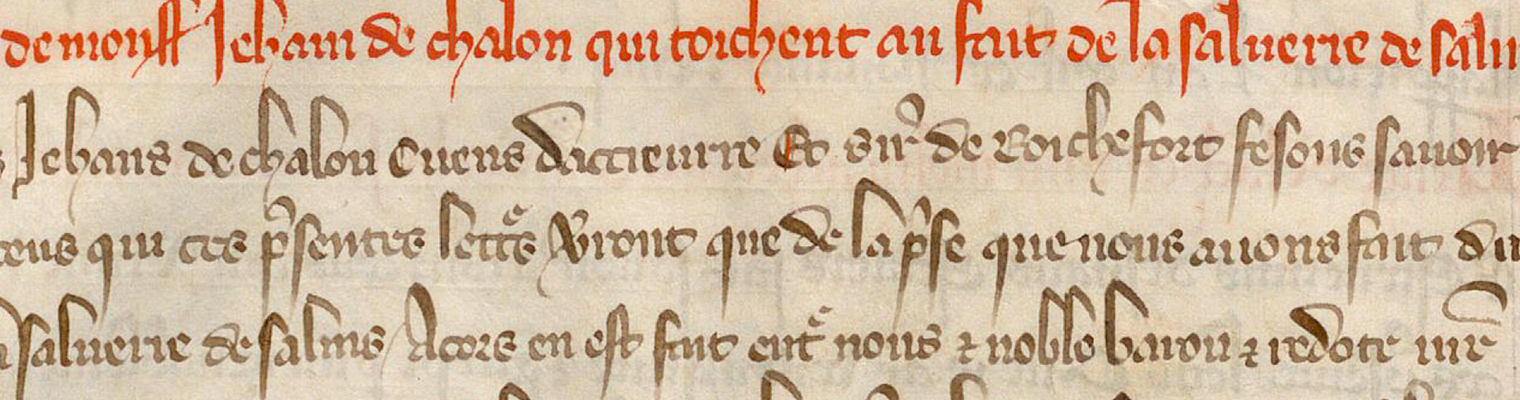 de monss Jehan de chalon qui toichent au fait de la salnerie de salin
Jehans de chalon Cuens daucieurre Et sire de Roichefort fesons sauoir
ceus qui ces p̄sentes lett̄s v̄ront que de la p̄se que nous auons fait du
salnerie de salins Acors en est fait ent̄ nous ⁊ noble baron ⁊ redote mr̄e